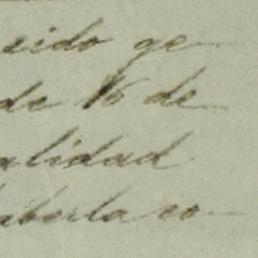 sido ge
de 16 de
alidad
aberla co